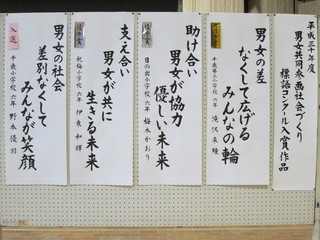 平成三十年度
男女共同参画社会づくり
標語コンクール入賞作品
男女の差
なくして広げる
みんなの輪
助け合い
男女が協力
優しい未来
日の出小学校 六年 梅木かおり
支え合い
男女が共に
生きる未来
祝梅小学校 六年 伊東和輝
入選
男女の社会
差別なくして
みんなが笑顔
千歳小学校 六年 野本優羽